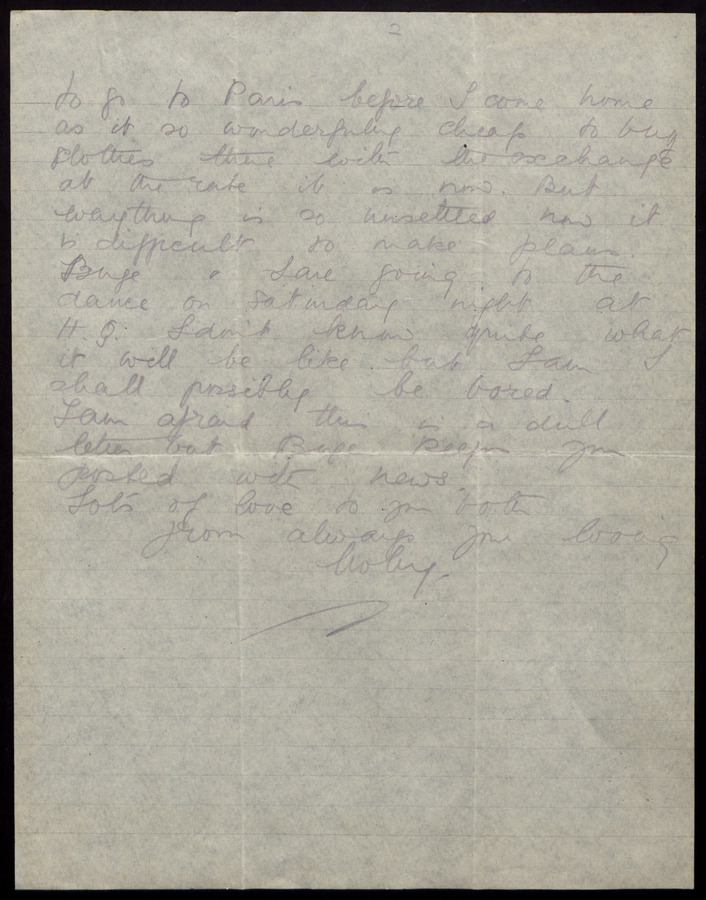 2
to go to Paris before I come home
as it so wonderfully cheap to buy
clothes there with the exchange
at the rate it is now. But
everything is so unsettled now it
is difficult to make plans.
& I are going to the
dance on Saturday night at
H.Q. I don't know quite what
it will be like but I am I
shall possibly be bored.
I am afraid this is a dull
letter but keeps you
posted with news.
Lots of love to you both
from always your loving